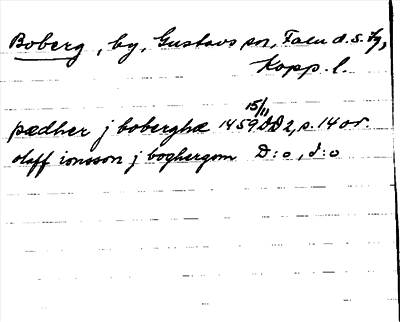 Boberg, by, Gustavs sn, Falu d.s. fg,
Kopp. l.
15/11
pædher j boberghæ 1459 DD 2, s. 14 or.
olaff ionsson j boghergom D:o, d:o